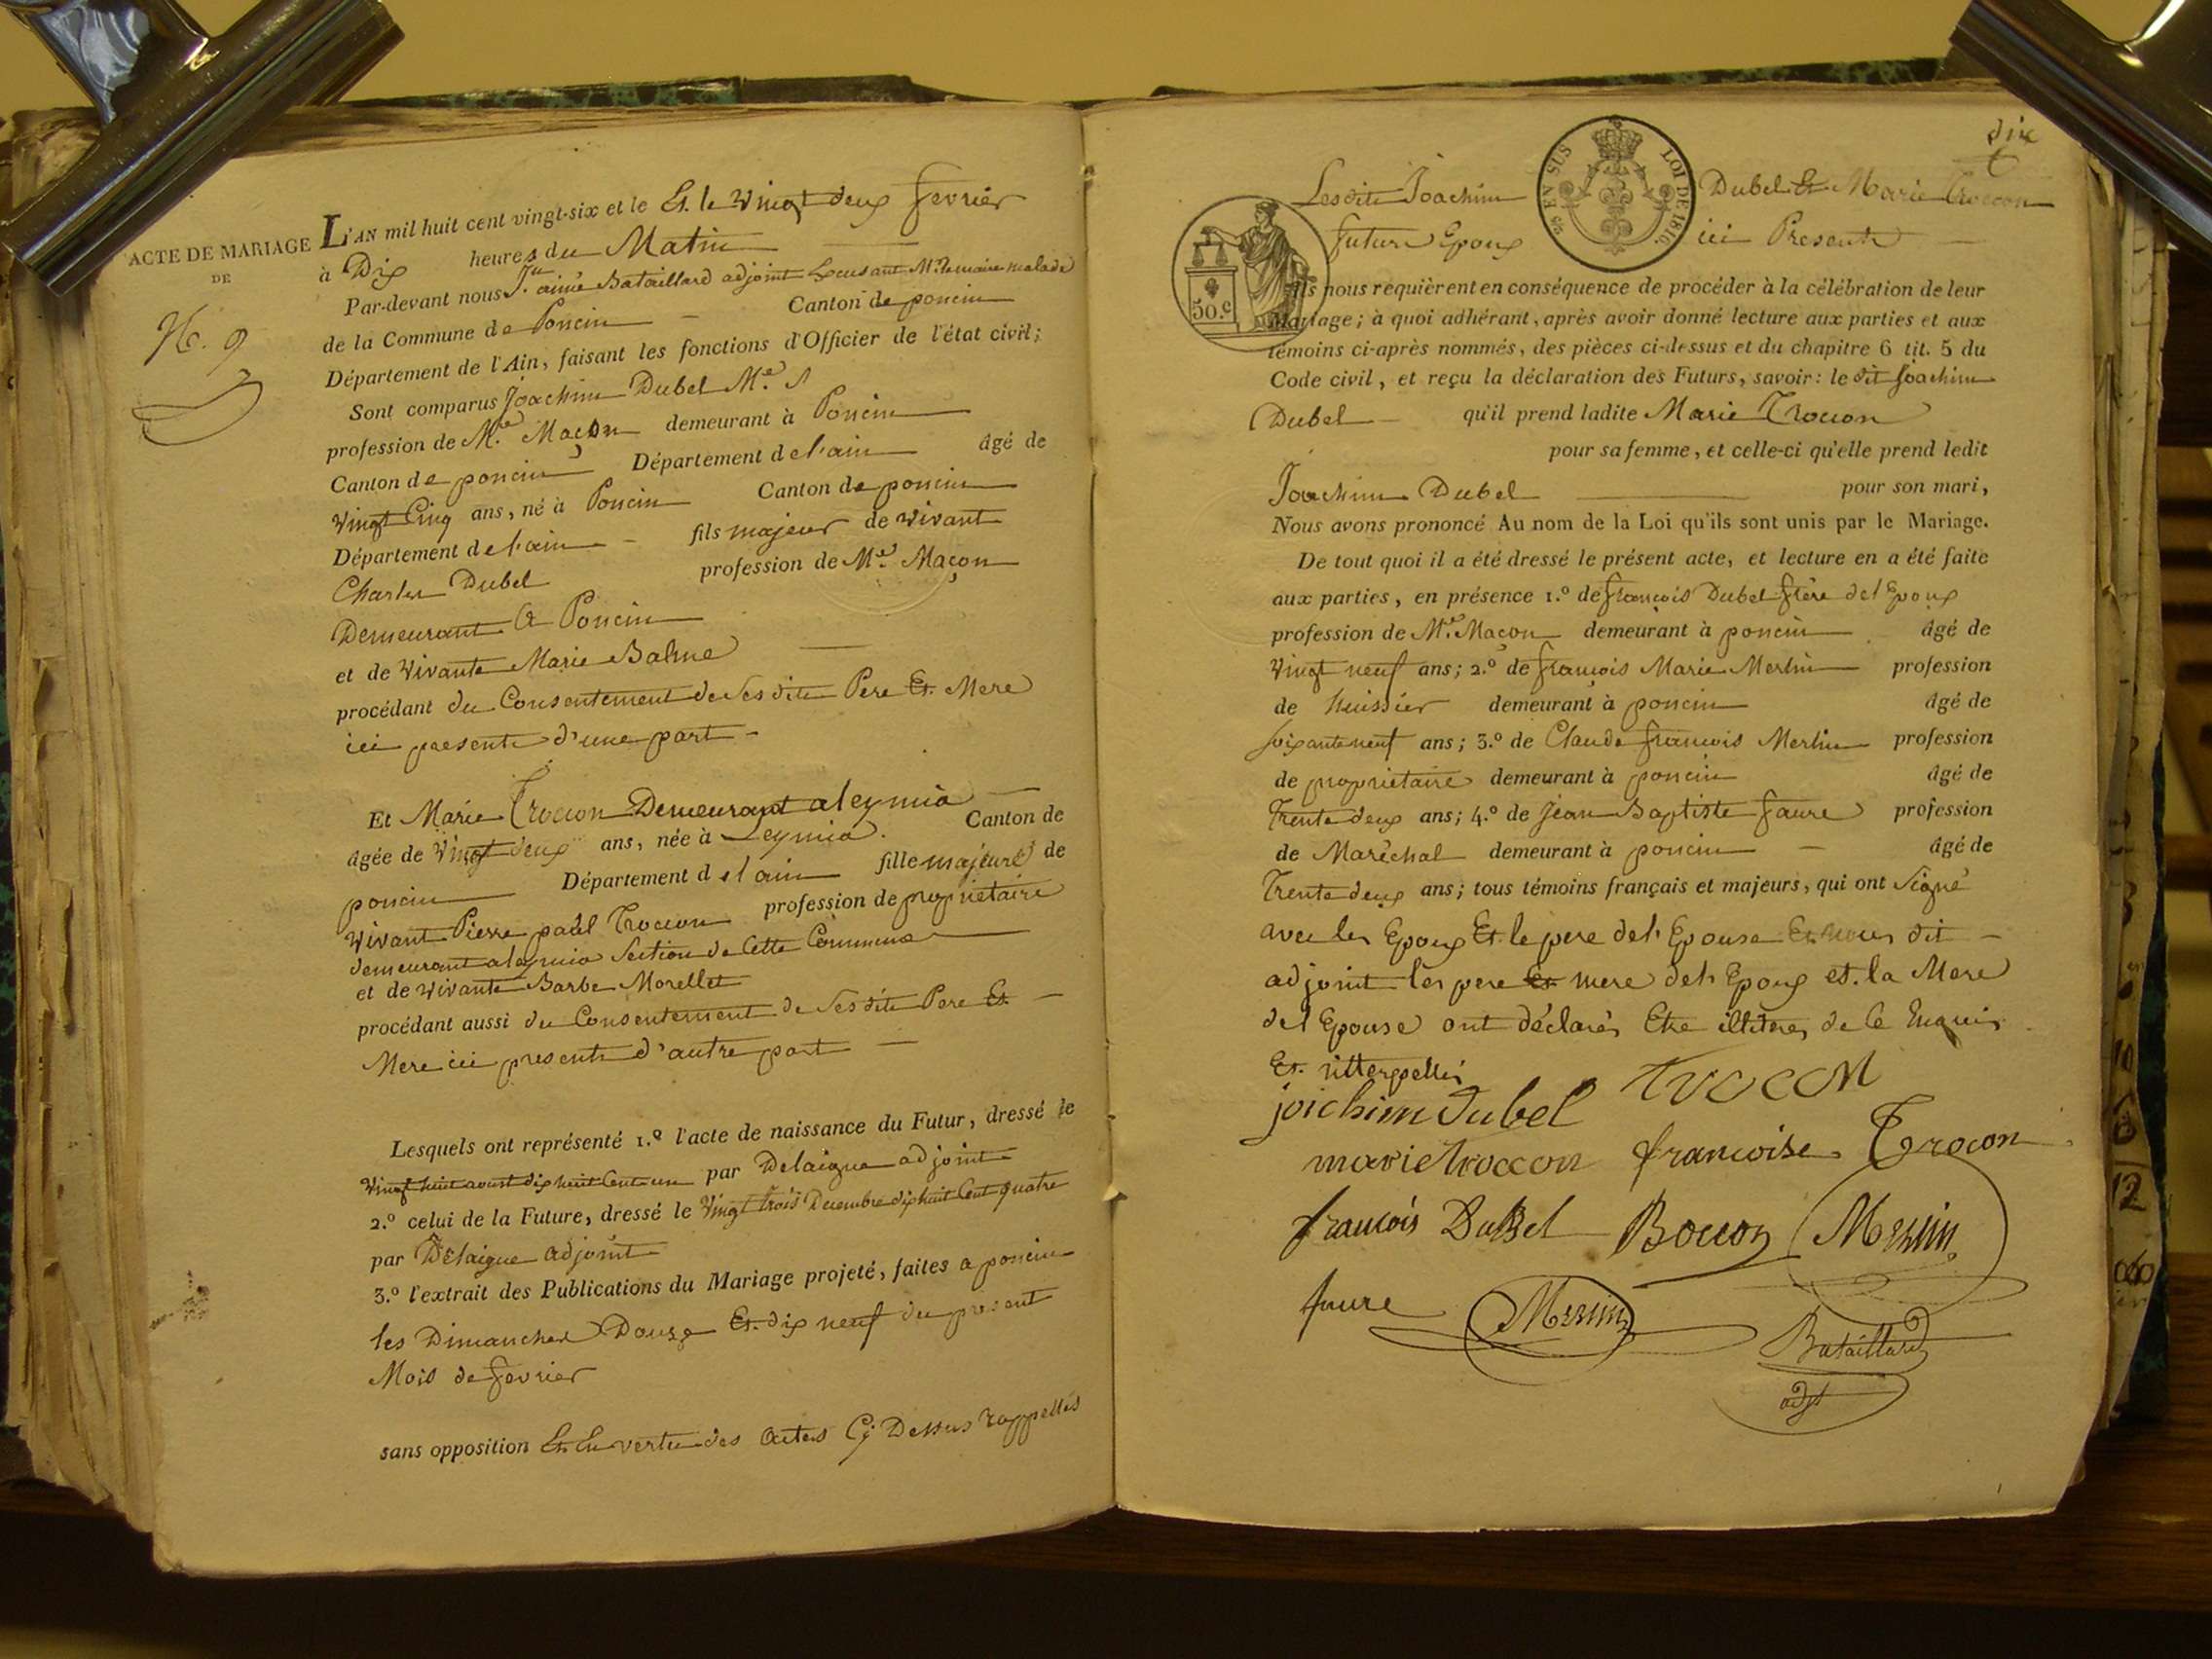 ACTE DE MARIAGE
DE
N.º 9
L'AN mil huit cent vingt-six et le Et le vingt deux fevrier
à Dix heures du Matin
Par-devant nous J.n aimé Bataillard adjoint M.r le maire malade
de la Commune de Poncin Canton de poncin
Département de l'Ain, faisant les fonctions d'Officier de l'état civil;
Sont comparus Joachim Dubel M.e
profession de M.e Maçon demeurant à Poncin
Canton de poncin Département de l'ain âgé de
vingt Cinq ans, né à Poncin Canton de poncin
Département de l'ain fils majeur de vivant
Charles Dubel profession de M.e Maçon
Demeurant a Poncin
et de vivante Marie Balme
procédant du Consentement de ses dits Pere Et Mere
ici presents d'une part
Et Marie Troccon Demeurant a leymia
âgée de vingt deux ans, née à Leymia. Canton de
poncin Département de l'ain fille majeure de
vivant Pierre paul Troccon profession de propriétaire
demeurant a leymia section de Cette Commune
et de vivante Barbe Morellet
procédant aussi du Consentement de ses dits Pere Et
Mere ici presents d'autre part
Lesquels ont représenté 1.º l'acte de naissance du Futur, dressé le
vingt huit aoust dix huit Cent un par Delaigue adjoint
2.º celui de la Future, dressé le vingt trois Decembre dix huit Cent quatre
par Delaigue adjoint
3.º l'extrait des Publications du Mariage projeté, faites a poncin
les Dimanches Douze Et dix neuf du present
Mois de fevrier
sans opposition Et En vertu des actes Cy Dessus rappellés
dix
Lesdits Joachim Dubel Et Marie Troccon
futurs Epoux ici Presents
EN SUS
LOI DE 1816.
50.c
Ils nous requièrent en conséquence de procéder à la célébration de leur
Mariage; à quoi adhérant, après avoir donné lecture aux parties et aux
témoins ci-après nommés, des pièces ci-dessus et du chapitre 6 tit. 5 du
Code civil, et reçu la déclaration des Futurs, savoir: le dit Joachim
Dubel qu'il prend ladite Marie Troccon
pour sa femme, et celle-ci qu'elle prend ledit
Joachim Dubel pour son mari,
Nous avons prononcé Au nom de la Loi qu'ils sont unis par le Mariage.
De tout quoi il a été dressé le présent acte, et lecture en a été faite
aux parties, en présence 1.º de françois Dubel frère de l'Epoux
profession de M.e Maçon demeurant à poncin âgé de
vingt neuf ans; 2.º de françois Marie Merlin profession
de huissier demeurant à poncin âgé de
soixante neuf ans; 3.º de Claude françois Merlin profession
de propriétaire demeurant à poncin âgé de
Trente deux ans; 4.º de Jean Baptiste faure profession
de Maréchal demeurant à poncin âgé de
Trente deux ans; tous témoins français et majeurs, qui ont signé
avec les Epoux Et le pere de l'Epouse Et nous dit
adjoint les pere Et mere de l'Epoux et la Mere
de l'Epouse ont déclarés Etre illiterés de ce Enquis
Et interpellés
joichim dubel Troccon
marie troccon francoise Trocon
francois Dubel Boccon Merlin
faure Merlin Bataillard
adjt